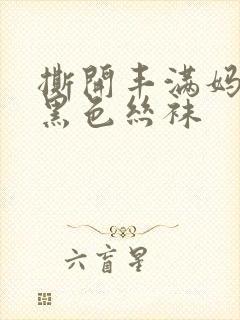 撕開丰滿妈
黑色丝袜
六盲星